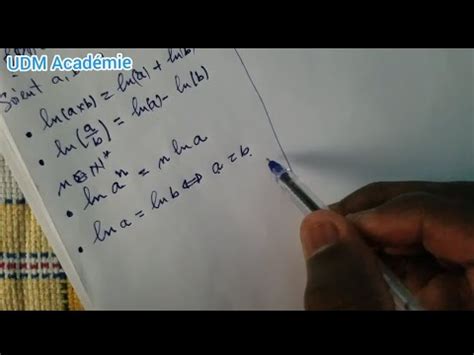 UDM Académie
Soient a,
• ln(a×b) = ln(a) + ln(b)
• ln(a/b) = ln(a) - ln(b)
n ∈ N*
• ln aⁿ = n ln a
• ln a = ln b ⇔ a = b.